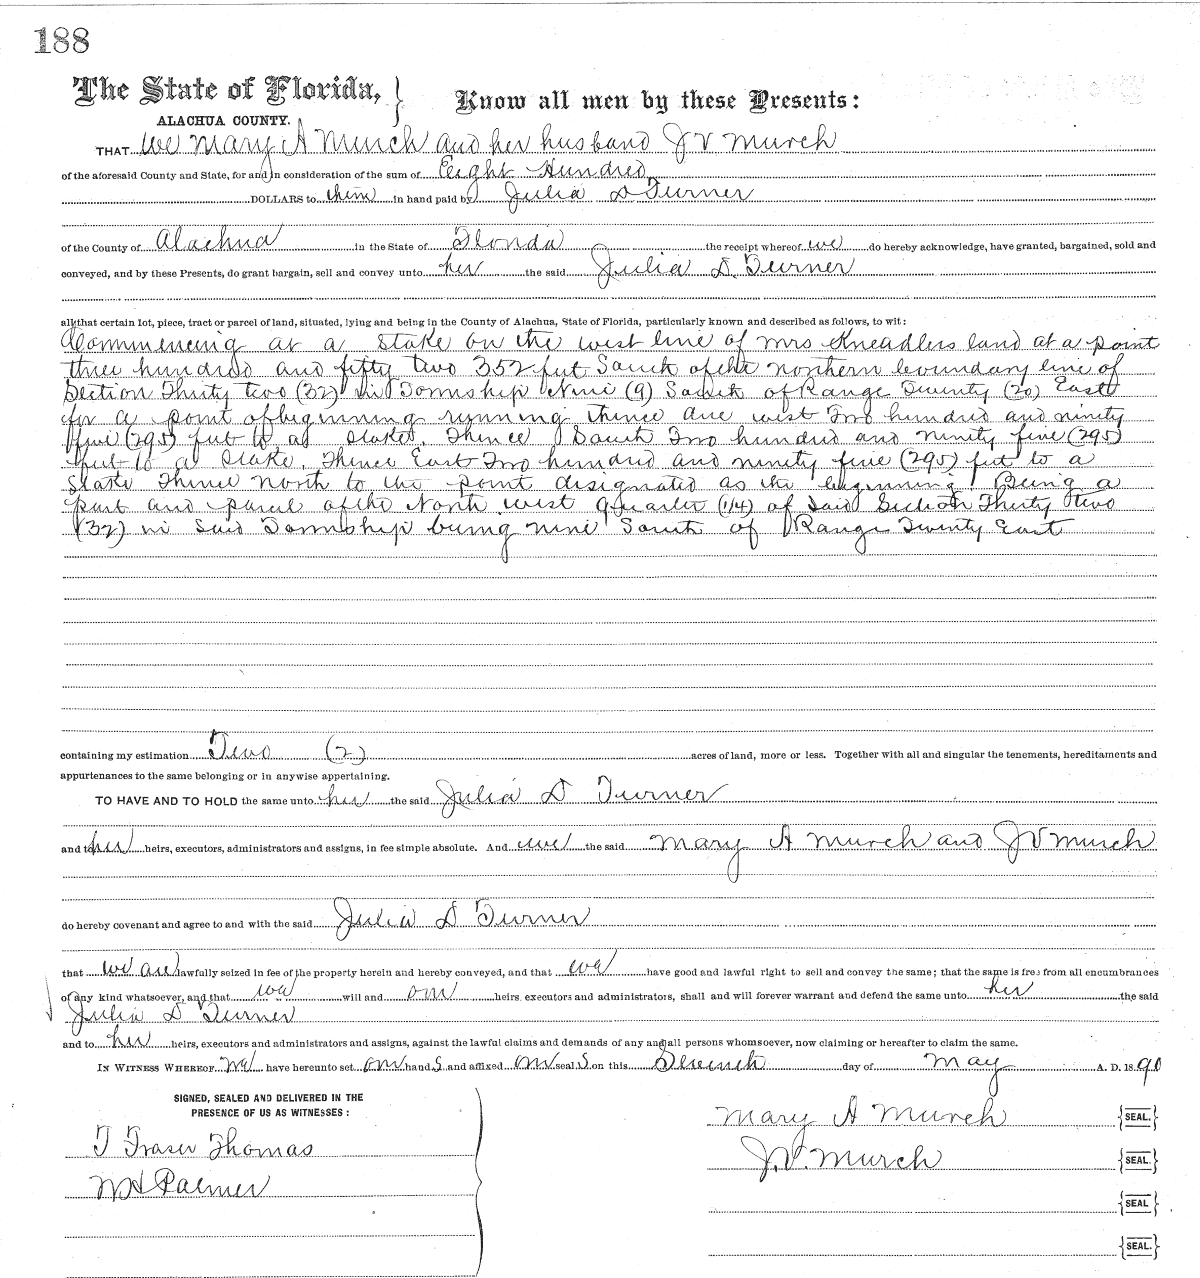 188
The State of Florida, } Know all men by these Presents:
ALACHUA COUNTY.
THAT We Mary A Murch and her husband J V Murch
of the aforesaid County and State, for and in consideration of the sum of Eight Hundred
DOLLARS to them in hand paid by Julia D Turner
of the County of Alachua in the State of Florida the receipt whereof we do hereby acknowledge, have granted, bargained, sold and
conveyed, and by these Presents, do grant bargain, sell and convey unto her the said Julia D. Turner
all that certain lot, piece, tract or parcel of land, situated, lying and being in the County of Alachua, State of Florida, particularly known and described as follows, to wit:
Commencing at a stake on the west line of Mrs Kneadlers land at a point
three hundred and fifty two 352 feet South of the northern boundary line of
Section Thirty two (32) in Township Nine (9) South of Range Twenty (20) East
for a point of beginning running thence due west Two hundred and ninety
five (295) feet to a stake. Thence South Two hundred and ninety five (295)
feet to a stake. Thence East Two hundred and ninety five (295) feet to a
stake Thence North to the point designated as the beginning. Being a
part and parcel of the North west quarter (1/4) of Said Section Thirty two
(32) in said Township being nine South of Range Twenty East
containing my estimation Two (2) acres of land, more or less. Together with all and singular the tenements, hereditaments and
appurtenances to the same belonging or in anywise appertaining.
TO HAVE AND TO HOLD the same unto her the said Julia D Turner
and to her heirs, executors, administrators and assigns, in fee simple absolute. And we the said Mary A Murch and J V Murch
do hereby covenant and agree to and with the said Julia D Turner
that we are lawfully seized in fee of the property herein and hereby conveyed, and that we have good and lawful right to sell and convey the same; that the same is free from all encumbrances
of any kind whatsoever, and that we will and our heirs executors and administrators, shall and will forever warrant and defend the same unto her the said
Julia D Turner
and to her heirs, executors and administrators and assigns, against the lawful claims and demands of any and all persons whomsoever, now claiming or hereafter to claim the same.
IN WITNESS WHEREOF we have hereunto set our hands and affixed our seals on this Seventh day of May A. D. 1890
SIGNED, SEALED AND DELIVERED IN THE
PRESENCE OF US AS WITNESSES:
T Fraser Thomas
W H Palmer
Mary A Murch {SEAL.}
J. V. Murch {SEAL.}
{SEAL}
{SEAL.}